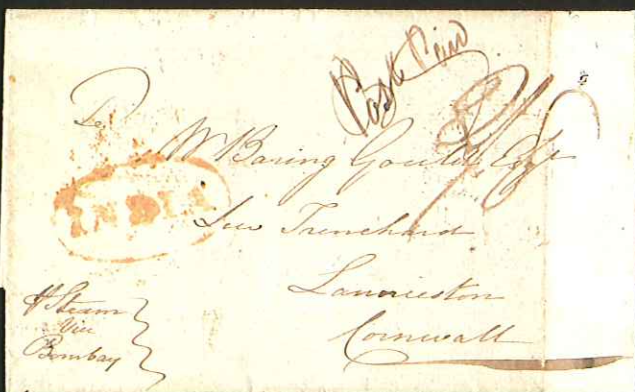 Post Paid
To
W Baring Gould Esqr
Lew Trenchard
Launceston
Cornwall
INDIA
Pr Steam
Via
Bombay